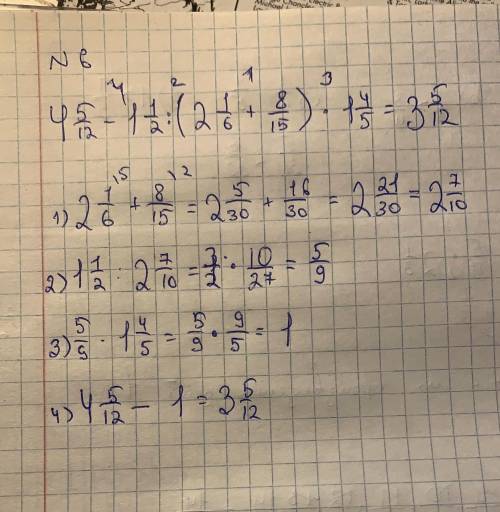 N 6
4 5/12 - 1 1/2 : (2 1/6 + 8/15) · 1 4/5 = 3 5/12
1) 2 1/6 + 8/15 = 2 5/30 + 16/30 = 2 21/30 = 2 7/10
2) 1 1/2 : 2 7/10 = 3/2 · 10/27 = 5/9
3) 5/9 · 1 4/5 = 5/9 · 9/5 = 1
4) 4 5/12 - 1 = 3 5/12